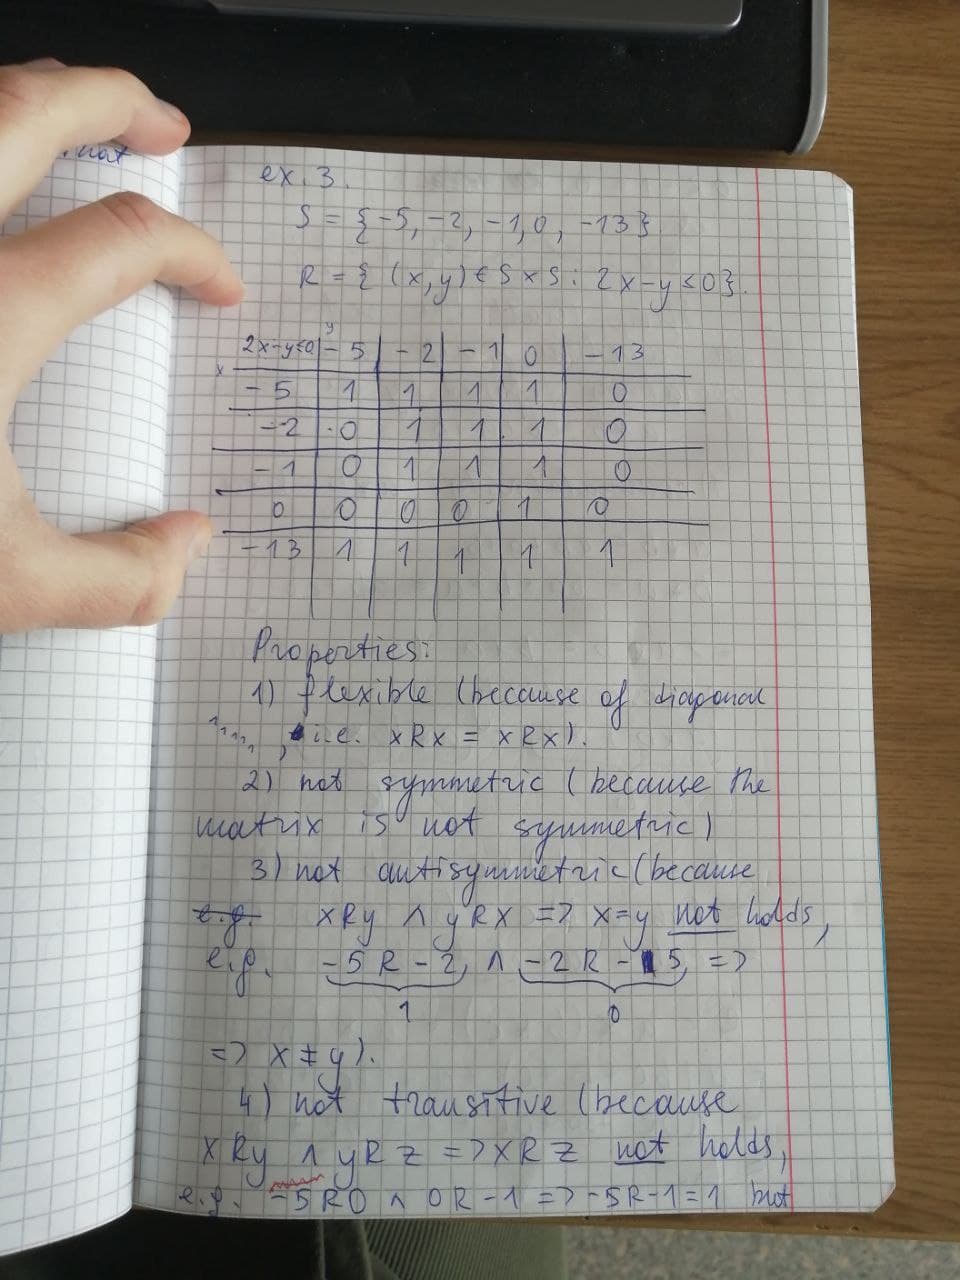 . not
ex. 3.
S = {-5, -2, -1, 0, -13}
R = { (x, y) ∈ S × S : 2x-y ≤ 0}.
y
2x-y≤0 -5 -2 -1 0 -13
x
-5 1 1 1 1 0
-2 0 1 1 1 0
-1 0 1 1 1 0
0 0 0 0 1 0
-13 1 1 1 1 1
Properties:
1) flexible (because of diagonal
1 1 1 1 1 , i.e. xRx = xRx).
2) not symmetric (because the
matrix is not symmetric)
3) not antisymmetric (because
e.g. xRy ∧ yRx => x=y not holds,
e.g. -5 R -2 ∧ -2 R -5 =>
1 0
=> x ≠ y).
4) not transitive (because
xRy ∧ yRz => xRz not holds,
e.g. -5R0 ∧ 0R-1 => -5R-1=1 but